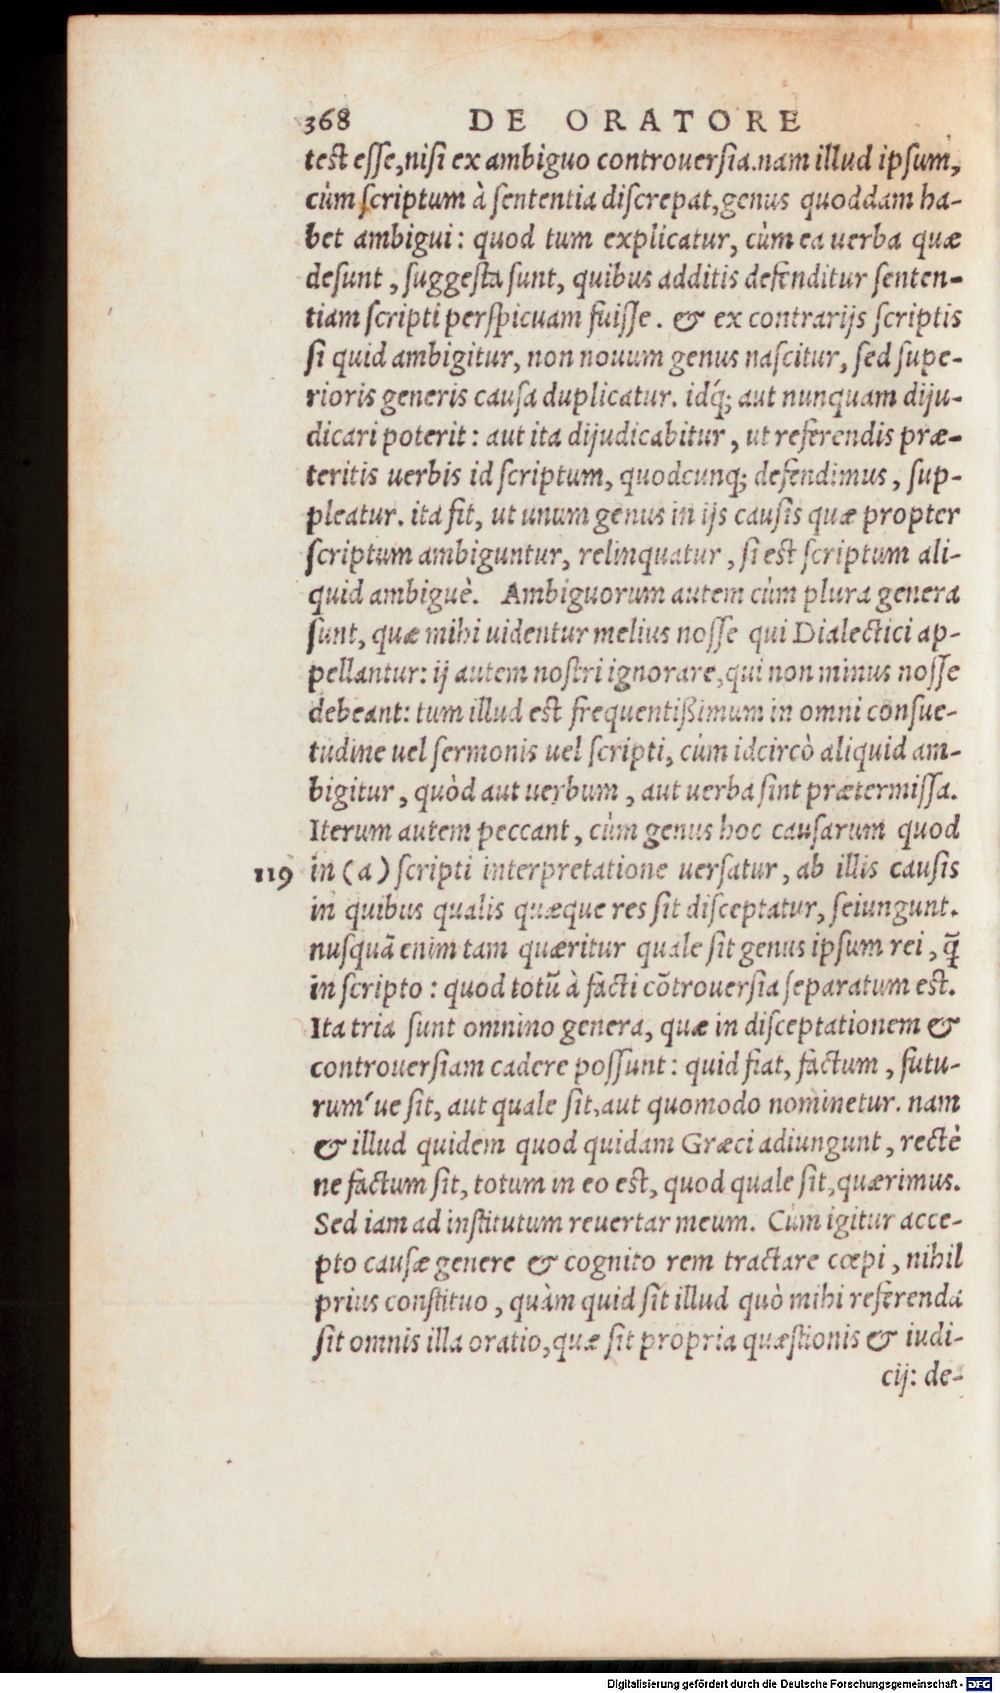 368 DE ORATORE
test esse, nisi ex ambiguo controuersia. nam illud ipsum,
cùm scriptum à sententia discrepat, genus quoddam ha-
bet ambigui: quod tum explicatur, cùm ea uerba quæ
desunt, suggesta sunt, quibus additis defenditur senten-
tiam scripti perspicuam fuisse. & ex contrarijs scriptis
si quid ambigitur, non nouum genus nascitur, sed supe-
rioris generis causa duplicatur. idq́; aut nunquam diju-
dicari poterit: aut ita dijudicabitur, ut referendis præ-
teritis uerbis id scriptum, quodcunq; defendimus, sup-
pleatur. ita fit, ut unum genus in ijs causis quæ propter
scriptum ambiguntur, relinquatur, si est scriptum ali-
quid ambiguè. Ambiguorum autem cùm plura genera
sunt, quæ mihi uidentur melius nosse qui Dialectici ap-
pellantur: ij autem nostri ignorare, qui non minus nosse
debeant: tum illud est frequentißimum in omni consue-
tudine uel sermonis uel scripti, cùm idcircò aliquid am-
bigitur, quòd aut uerbum, aut uerba sint prætermissa.
Iterum autem peccant, cùm genus hoc causarum quod
119 in (a) scripti interpretatione uersatur, ab illis causis
in quibus qualis quæque res sit disceptatur, seiungunt.
nusquā enim tam quæritur quale sit genus ipsum rei, q̄
in scripto: quod totū à facti cōtrouersia separatum est.
Ita tria sunt omnino genera, quæ in disceptationem &
controuersiam cadere possunt: quid fiat, factum, futu-
rum´ue sit, aut quale sit, aut quomodo nominetur. nam
& illud quidem quod quidam Græci adiungunt, rectè
ne factum sit, totum in eo est, quod quale sit, quærimus.
Sed iam ad institutum reuertar meum. Cùm igitur acce-
pto causæ genere & cognito rem tractare cœpi, nihil
prius constituo, quàm quid sit illud quò mihi referenda
sit omnis illa oratio, quæ sit propria quæstionis & iudi-
cij: de-
Digitalisierung gefördert durch die Deutsche Forschungsgemeinschaft - DFG